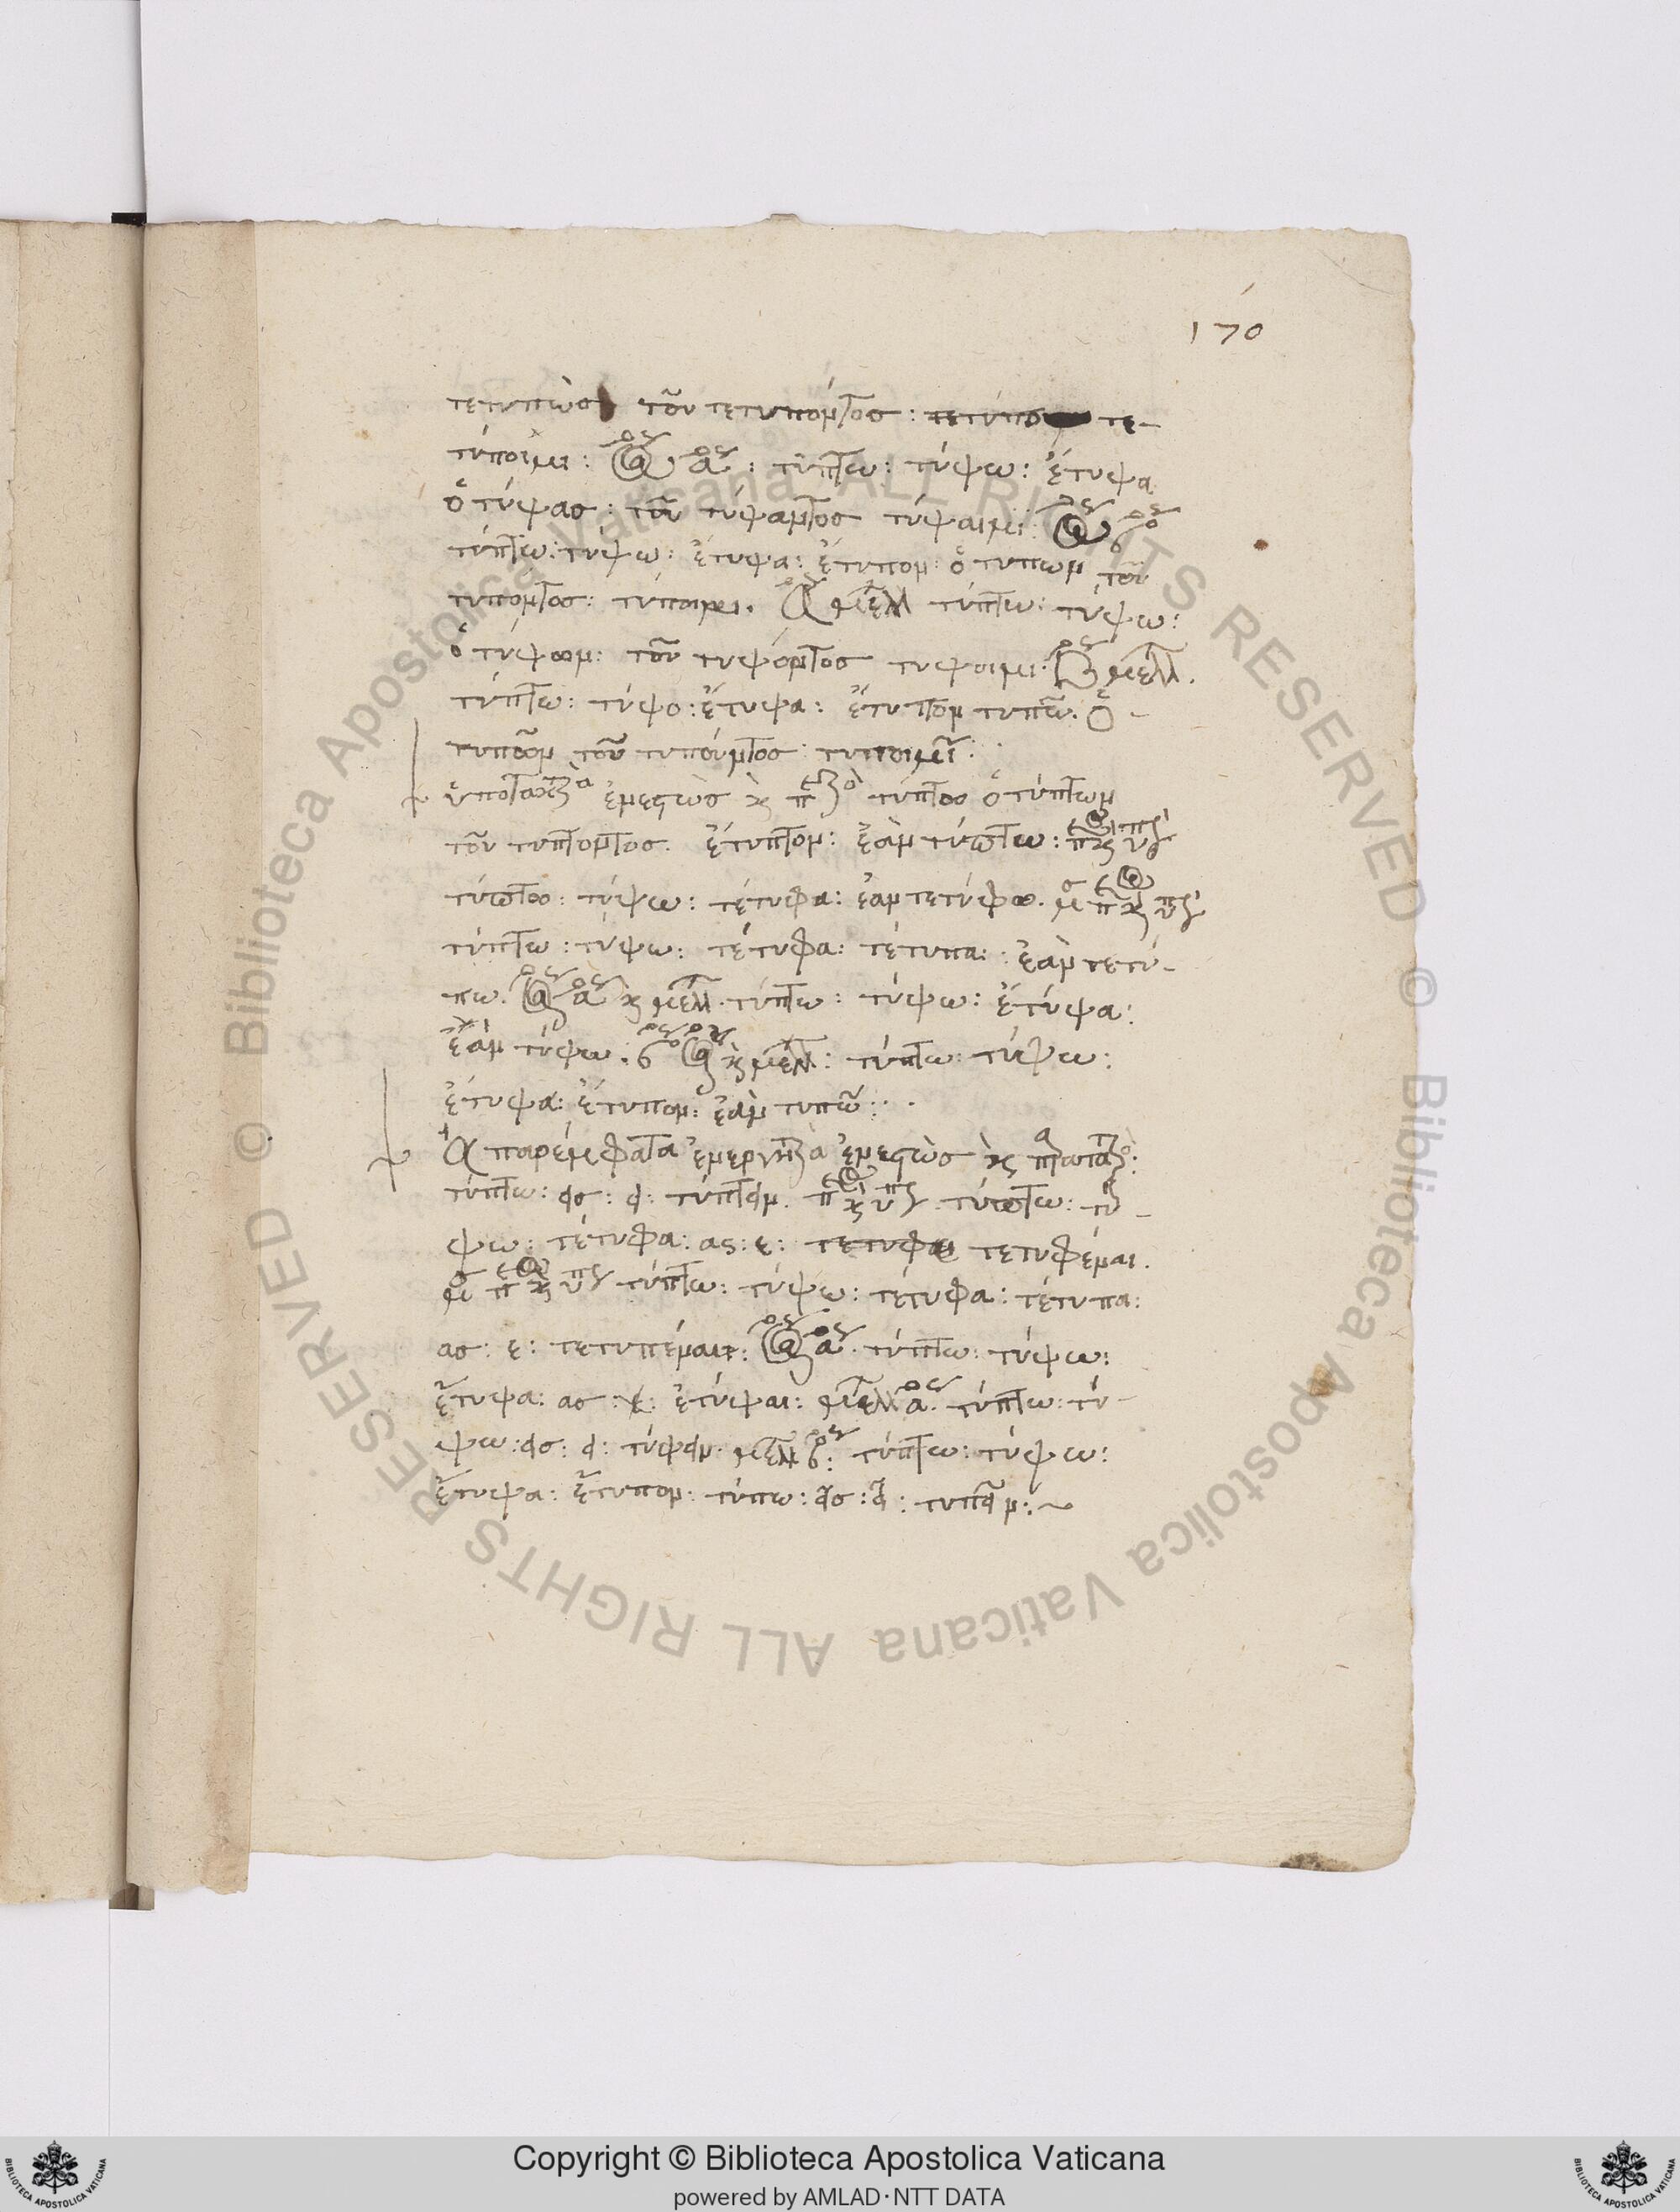 170
τετυπὼσ τοῦ τετυπόντοσ: τετυπο τε-
τύποιμι: τύπτω: τύψω: ἔτυψα
ὁ τύψασ: τοῦ τύψαντοσ τύψαιμι:
τύπτω: τύψω: ἔτυψα: ἔτυπον: ὁ τυπων τοῦ
τυπόντοσ: τύποιμι. ἀόρ μέλλ τύπτω: τύψω:
ὁ τύψων: τοῦ τυψόντοσ τυψοιμι: μέλλ.
τύπτω: τύψο: ἔτυψα: ἔτυπον τυπῶ. ὁ -
τυπῶν τοῦ τυποῦντοσ: τυποιμῖ:
ὑποτακτικὰ ἐνεστὼσ κ τύπτω ὁ τύπτων
τοῦ τυπτοντοσ. ἔτυπτον: ἐὰν τύπτω:
τύπτω: τύψω: τέτυφα: ἐαν τετύφω.
τύπτω: τύψω: τέτυφα: τέτυπα: ἐὰν τετύ-
πω. ἀόρ α κ μέλλ. τύπτω: τύψω: ἔτύψα:
ἐὰν τύψω: κ μέλλ: τύπτω: τύψω:
ἔτυψα: ἔτυπον: ἐὰν τυπῶ:
Ἀπαρέμφατα ἐνεργητικὰ ἐνεστὼσ κ
τύπτω: εισ: ει: τύπτειν. τύπτω: τύ-
ψω: τέτυφα: ασ: ε: τετυφε τετυφέναι.
τύπτω: τύψω: τέτυφα: τέτυπα:
ασ: ε: τετυπέναι: τύπτω: τύψω:
ἔτυψα: ασ: ε: ἐτύψαι: μέλλ α. τύπτω: τύ-
ψω: εισ: ει: τύψειν. μέλλ β: τύπτω: τύψω:
ἔτυψα: ἔτυπον: τύπω: εῖσ: εῖ: τυπεῖν:~
Copyright © Biblioteca Apostolica Vaticana
powered by AMLAD·NTT DATA